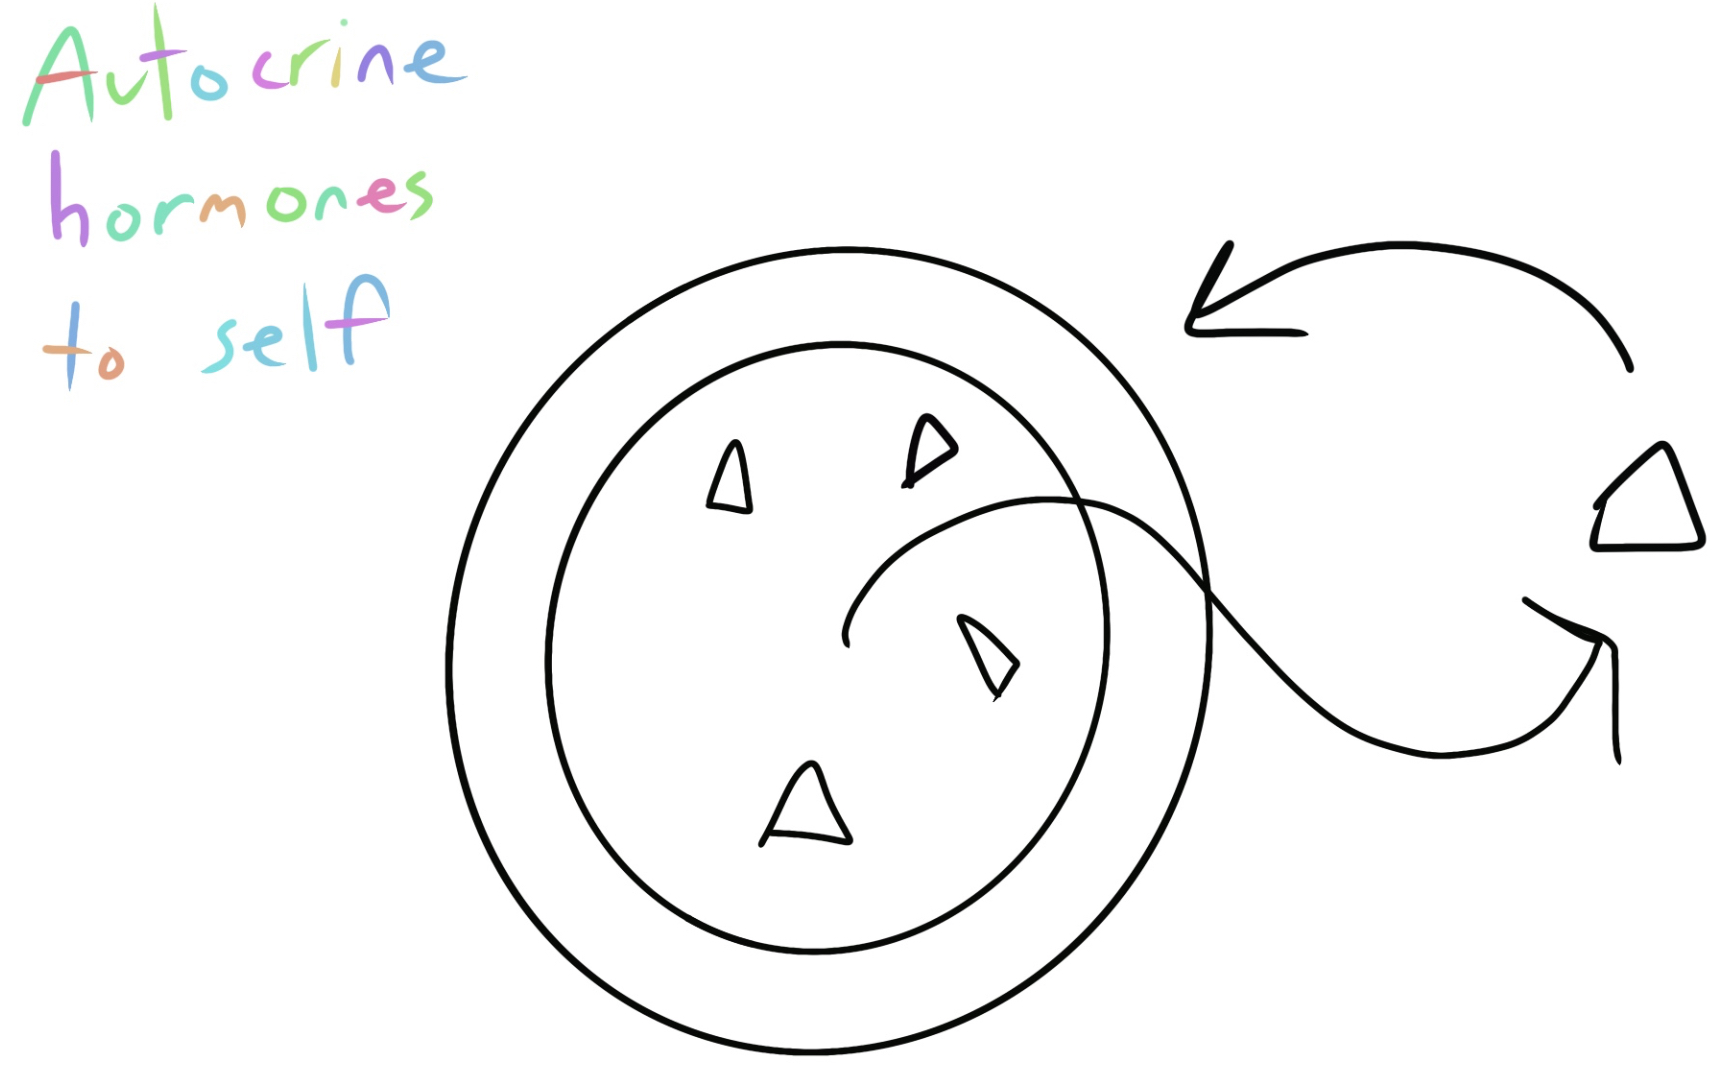 Autocrine
hormones
to self